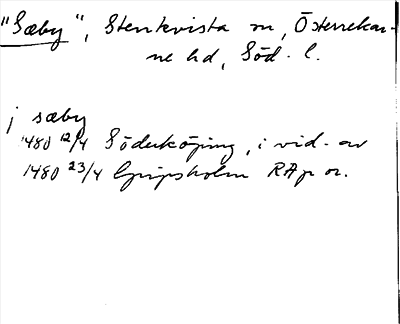 "Sæby", Stenkvista sn, Österrekar-
ne hd, Söd. l.
j sæby
1480 12/4 Söderköping, i vid. av
1480 23/4 Gripsholm RAp or.